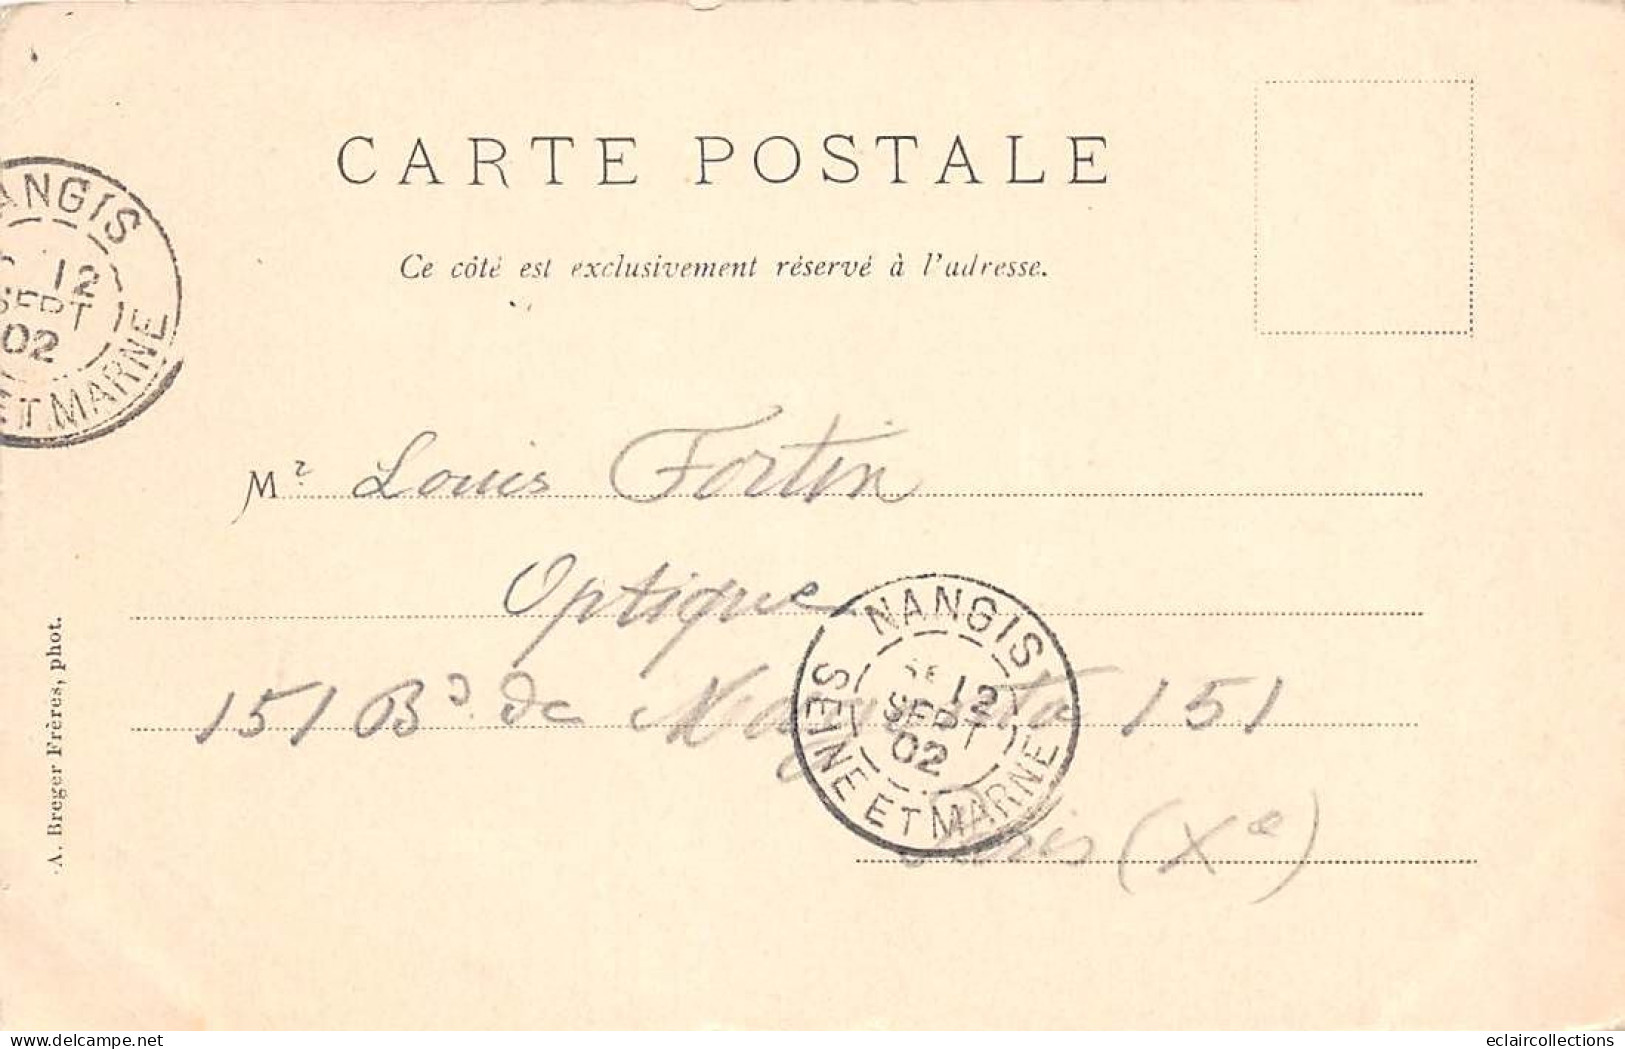 CARTE POSTALE
Ce côté est exclusivement réservé à l'adresse.
ANGIS
12
SEPT
02
ET MARNE
Mr Louis Fortin
Optique
151 Bd de Magenta 151
Paris (Xe)
NANGIS
12
SEPT
02
SEINE ET MARNE
A. Breger Frères, phot.
www.delcampe.net
eclaircollections